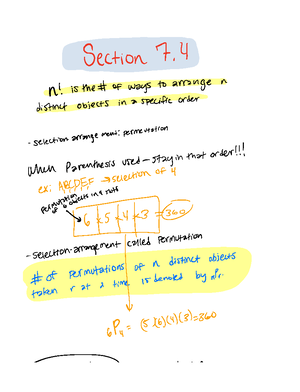 Section 7.4
n! is the # of ways to arrange n
distinct objects in a specific order
- selection arrange menu: permutation
when Parenthesis used - stay in that order!!!
ex: ABCDEF → selection of 4
Permutation
of 6 objects in 4
6 x 5 x 4 x 3 = 360
- selection-arrangement called Permutation
# of Permutations of n distinct objects
taken r at a time is denoted by nPr.
6P4 = (5)(6)(4)(3)=360